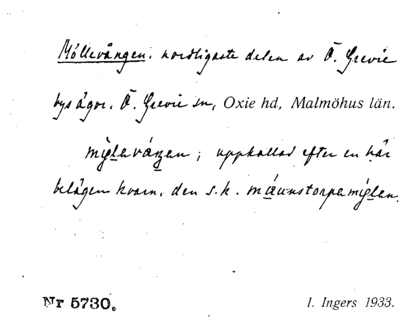 Möllevången, nordligaste delen av Ö. Grevie
bys ägor. Ö. Grevie sn, Oxie hd, Malmöhus län.
mi̱glevá̱ŋen; uppkallad efter en här
belägen kvarn, den s.k. má̱unstorpami̱glen.
Nr 5730.
I. Ingers 1933.